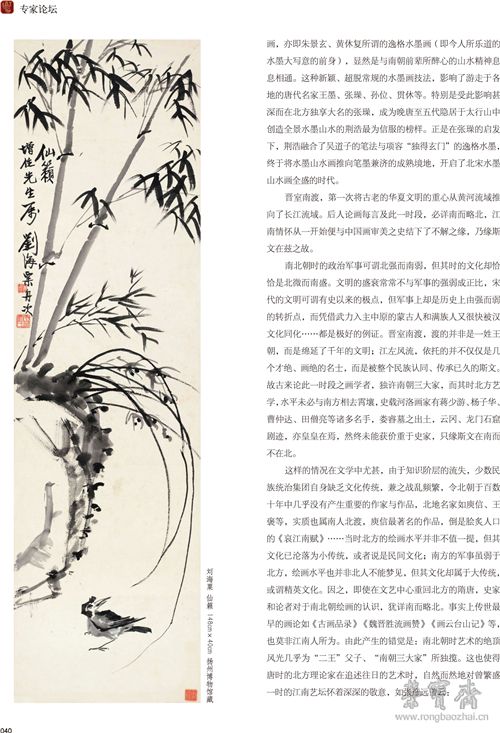 专家论坛
仙籁
增任先生属
劉海粟舟次
刘海粟 仙籁 148cm×40cm 扬州博物馆藏
画，亦即朱景玄、黄休复所谓的逸格水墨画（即今人所乐道的
水墨大写意的前身），显然是与南朝前辈所醉心的山水精神息
息相通。这种新颖、超脱常规的水墨画技法，影响了游走于各
地的唐代名家王墨、张璪、孙位、贯休等。特别是受此影响甚
深而在北方独享大名的张璪，成为晚唐至五代隐居于太行山中
创造全景水墨山水的荆浩最为信服的榜样。正是在张璪的启发
下，荆浩融合了吴道子的笔法与项容“独得玄门”的逸格水墨，
终于将水墨山水画推向笔墨兼济的成熟境地，开启了北宋水墨
山水画全盛的时代。
晋室南渡，第一次将古老的华夏文明的重心从黄河流域推
向了长江流域。后人论画每言及此一时段，必详南而略北，江
南情怀从一开始便与中国画审美之史结下了不解之缘，乃缘斯
文在兹之故。
南北朝时的政治军事可谓北强而南弱，但其时的文化却恰
恰是北微而南盛。文明的盛衰常常不与军事的强弱成正比，宋
代的文明可谓有史以来的极点，但军事上却是历史上由强而弱
的转折点，而凭借武力入主中原的蒙古人和满族人又很快被汉
文化同化……都是极好的例证。晋室南渡，渡的并非是一姓王
朝，而是绵延了千年的文明；江左风流，依托的并不仅仅是几
个才绝、画绝的名士，而是被整个民族认同、传承已久的斯文。
故古来论此一时段之画学者，独许南朝三大家，而其时北方艺
学，水平未必与南方相去霄壤，史载河洛画家有蒋少游、杨子华、
曹仲达、田僧亮等诸多名手，娄睿墓之出土，云冈、龙门石窟
剧迹，亦皇皇在焉，然终未能获价重于史家，只缘斯文在南而
不在北。
这样的情况在文学中尤甚，由于知识阶层的流失，少数民
族统治集团自身缺乏文化传统，兼之战乱频繁，令北朝于百数
十年中几乎没有产生重要的作家与作品，北地名家如庾信、王
褒等，实质也属南人北渡，庾信最著名的作品，倒是脍炙人口
的《哀江南赋》……当时北方的绘画水平并非不值一提，但其
文化已沦落为小传统，或者说是民间文化；南方的军事虽弱于
北方，绘画水平也并非北人不能梦见，但其文化却属于大传统，
或谓精英文化。因之，即使在文艺中心重回北方的隋唐，史家
和论者对于南北朝绘画的认识，犹详南而略北。事实上传世最
早的画论如《古画品录》《魏晋胜流画赞》《画云台山记》等，
也莫非江南人所为。由此产生的错觉是：南北朝时艺术的绝顶
风光几乎为“二王”父子、“南朝三大家”所独揽。这也使得
唐时的北方理论家在追述往日的艺术时，自然而然地对曾繁盛
一时的江南艺坛怀着深深的敬意，如张彦远曾云：
荣宝斋
www.rongbaozhai.cn
040